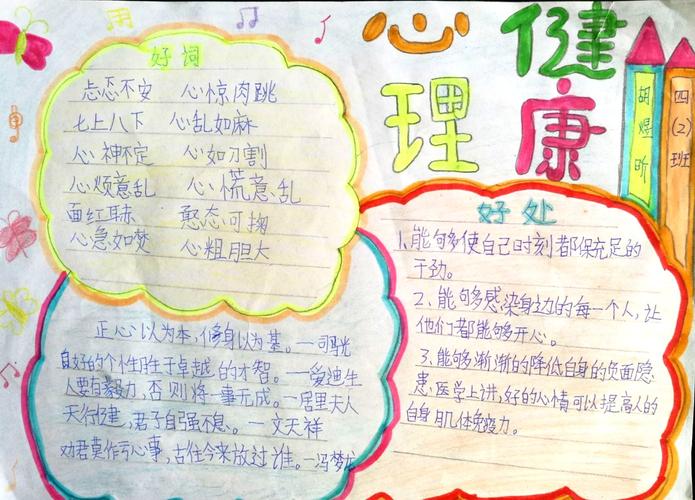 心理
健康
四(2)班
胡煜昕
好词
忐忑不安 心惊肉跳
七上八下 心乱如麻
心神不定 心如刀割
心烦意乱 心慌意乱
面红耳赤 憨态可掬
心急如焚 心粗胆大
正心以为本,修身以为基。—司马光
良好的个性胜于卓越的才智。—爱迪生
人要有毅力,否则将一事无成。—居里夫人
天行健,君子自强不息。—文天祥
劝君莫作亏心事,古往今来放过谁。—冯梦龙
好处
1、能够多使自己时刻都保充足的
干劲。
2、能够多感染身边的每一个人,让
他们都能够开心。
3、能够渐渐的降低自身的负面隐
患,医学上讲,好的心情可以提高人的
自身肌体免疫力。